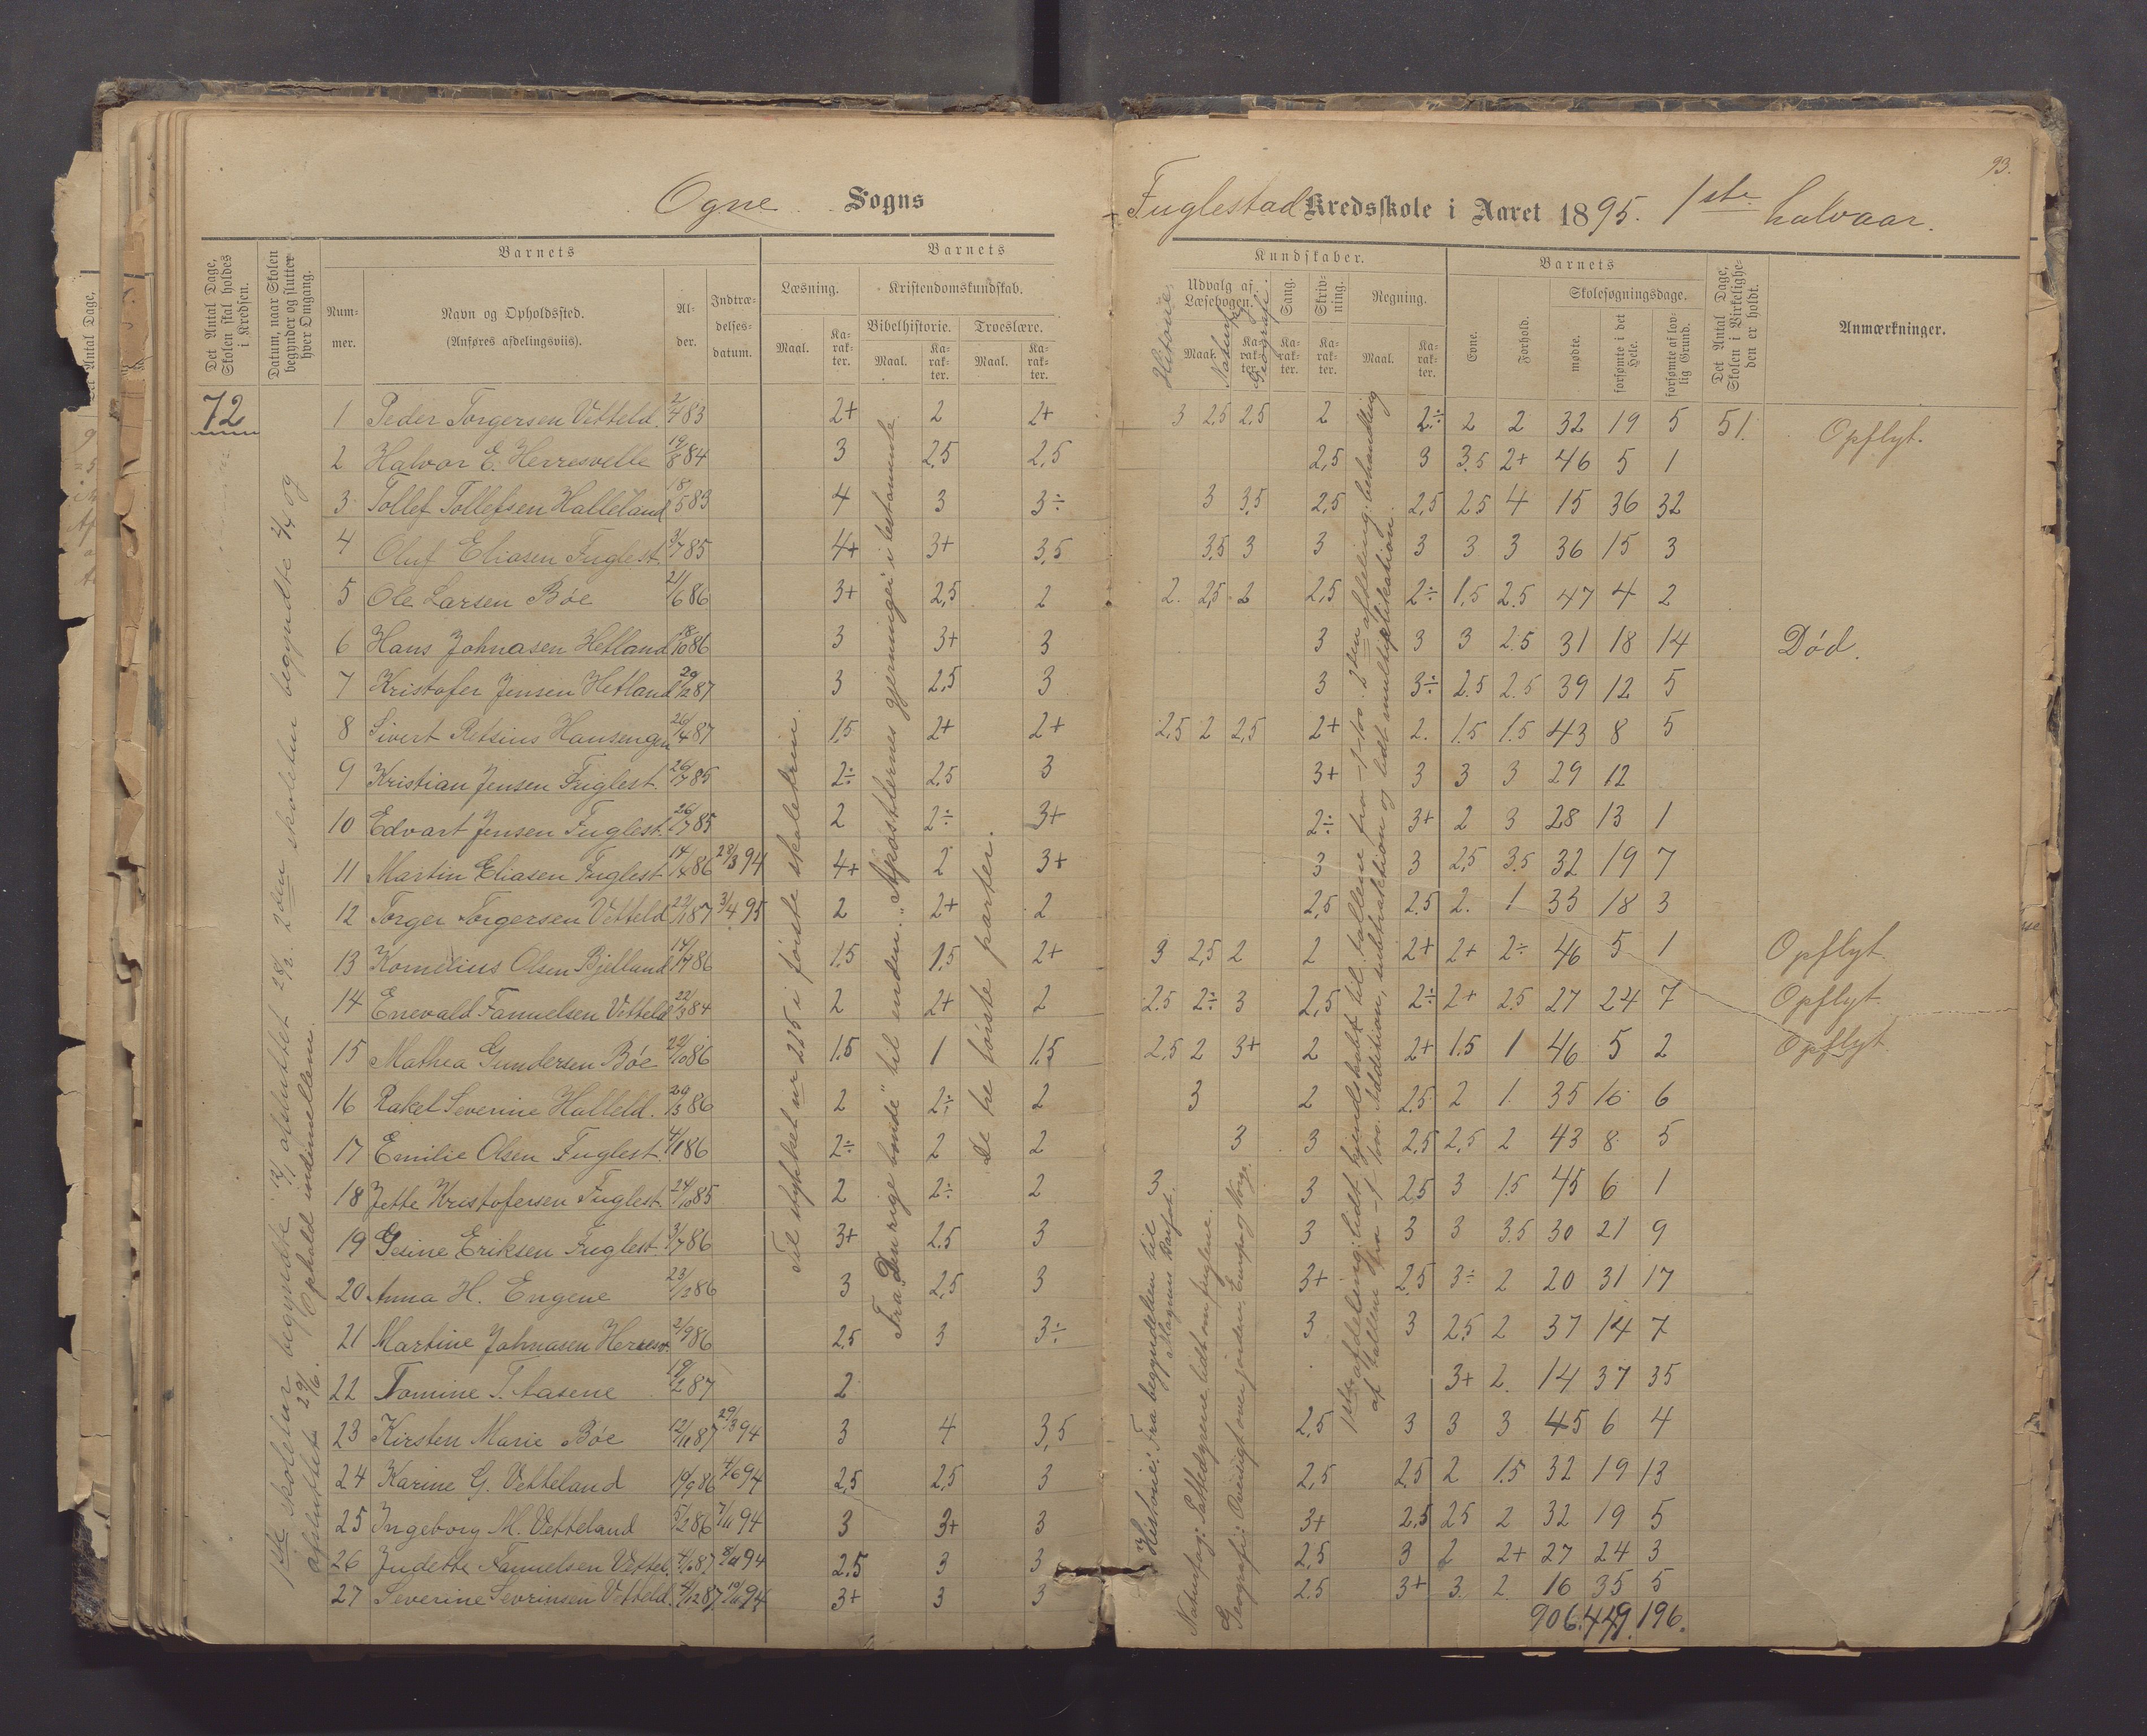 93.
Ogne Sogns
Fuglestad Kredsskole i Aaret 1895. 1ste halvaar.
Det Antal Dage, Skolen skal holdes i Kredsen.
Datum, naar Skolen begynder og slutter hver Omgang.
Barnets
Num-mer.
Navn og Opholdssted.
(Anføres afdelingsviis).
Al-der.
Indtræ-delses-datum.
Barnets
Læsning.
Maal.
Ka-rak-ter.
Kristendomskundskab.
Bibelhistorie.
Maal.
Ka-rak-ter.
Troeslære.
Maal.
Ka-rak-ter.
Kundskaber.
Historie
Udvalg af Læsebogen.
Maal.
Naturf.
Ka-rak-ter.
Geografi.
Sang.
Ka-rak-ter.
Skriv-ning.
Ka-rak-ter.
Regning.
Maal.
Ka-rak-ter.
Barnets
Evne.
Forhold.
Skolesøgningsdage.
mødte.
forsømte i det Hele.
forsømte af lov-lig Grund.
Det Antal Dage, Skolen i Virkelighe-den er holdt.
Anmærkninger.
72
1ste skoletur begyndte 12/1 afsluttet 28/2. 2den skoletur begyndte 2/4 og
afsluttet 29/6. Ophold indimellem.
Til stykket nr 225 i første skoletrin.
Fra „Den rige bonde" til enden. „Apostlernes gjerninger i testamente
De tre første parter.
Historie: Fra begyndelsen til
Magnus Barfot.
Naturfag: Pattedyrene lidt om fuglene.
Geografi: Oversigt over jorden, Europa og Norge.
1ste afdeling: lidt kjendskab til tallene fra 1-100. 2den afdeling: behandling
af tallene fra 1- 100. Addition, subtraktion og lidt multiplikation.
1 Peder Torgersen Vetteld. 2/4 83 2+ 2 2+ 3 2,5 2,5 2 2÷ 2 2 32 19 5 51. Opflyt.
2 Halvor E. Herresvelle 19/8 84 3 2,5 2,5 2,5 3 3.5 2+ 46 5 1
3 Tollef Tollefsen Halleland 18/5 83 4 3 3÷ 3 3,5 2,5 2,5 2,5 4 15 36 32
4 Oluf Eliasen Fuglest. 3/7 85 4+ 3+ 3,5 3,5 3 3 3 3 3 36 15 3
5 Ole Larsen Bøe 21/6 86 3+ 2,5 2 2. 2,5 2 2,5 2÷ 1,5 2.5 47 4 2
6 Hans Johnasen Hetland 18/10 86 3 3+ 3 3 3 3 2.5 31 18 14 Død.
7 Kristofer Jensen Hetland 29/12 87 3 2,5 3 3 3÷ 2.5 2.5 39 12 5
8 Sivert Retsius Hansengen 26/4 87 1,5 2+ 2+ 2,5 2 2,5 2+ 2. 1.5 1.5 43 8 5
9 Kristian Jensen Fuglest. 26/7 85 2÷ 2,5 3 3+ 3 3 3 29 12
10 Edvart Jensen Fuglest. 26/7 85 2 2÷ 3+ 2÷ 3+ 2 3 28 13 1
11 Martin Eliasen Fuglest 14/8 86 28/3 94 4+ 2 3+ 3 3 2,5 3.5 32 19 7
12 Torger Torgersen Vetteld 22/1 87 3/4 95 2 2+ 2 2,5 2.5 2. 1 33 18 3
13 Kornelius Olsen Bjelland 14/7 86 1,5 1,5 2+ 3 2,5 2 2 2+ 2+ 2÷ 46 5 1 Opflyt.
14 Enevald Fanuelsen Vetteld 22/3 84 2 2+ 2 2.5 2÷ 3 2,5 2÷ 2+ 2.5 27 24 7 Opflyt.
15 Mathea Gundersen Bøe 22/10 86 1.5 1 1,5 2,5 2 3+ 2 2+ 1.5 1 46 5 2 Opflyt.
16 Rakel Severine Halleld. 29/3 86 2 2÷ 2 3 2 2,5 2 1. 35 16 6
17 Emilie Olsen Fuglest. 4/1 86 2÷ 2 2 3 3 2,5 2,5 2 43 8 5
18 Jette Kristofersen Fuglest. 24/10 85 2 2÷ 2 3 3 2,5 3 1.5 45 6 1
19 Gesine Eriksen Fuglest. 3/7 86 3+ 2.5 3 3 3 3 3.5 30 21 9
20 Anna H. Engene 23/12 86 3 2,5 3 3+ 2,5 3÷ 2 20 31 17
21 Martine Johnasen Herresv. 2/9 86 2,5 3 3÷ 3 3 2.5 2 37 14 7
22 Tomine T. Aasene 19/2 87 2 3+ 2. 14 37 35
23 Kirsten Marie Bøe 12/11 87 29/3 94 3 4 3,5 2,5 3 3 3 45 6 4
24 Karine G. Vetteland 19/9 86 4/6 94 2,5 2,5 3 2,5 2.5 2 1.5 32 19 13
25 Ingeborg M. Vetteland 5/2 86 7/11 94 3 3+ 3 3+ 2,5 2.5 2 32 19 5
26 Judette Fanuelsen Vettel. 4/6 87 8/11 94 2.5 3 3 2.5 3 2 2+ 27 24 3
27 Severine Sevrinsen Vetteld. 4/12 87 10/11 94 3+ 3 3 2.5 3+ 3. 2. 16 35 5
906. 449. 196.